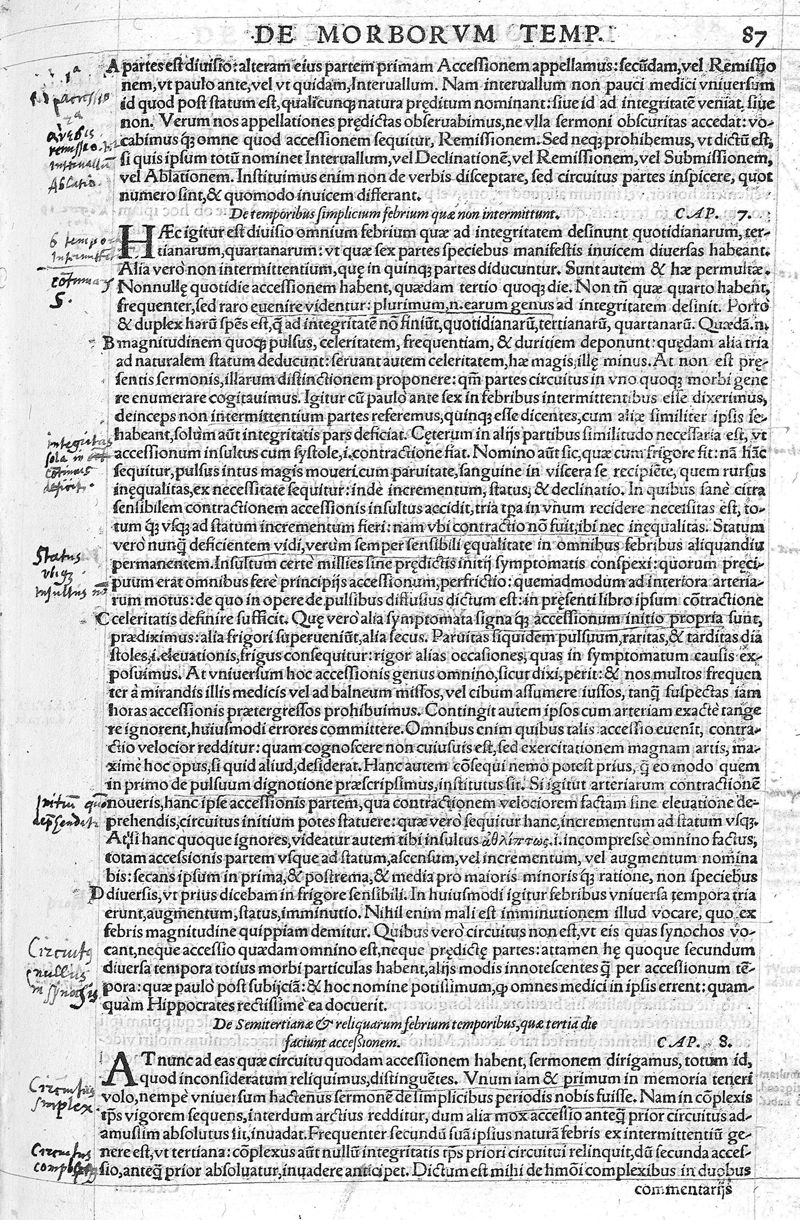 DE MORBORVM TEMP. 87
A partes est diuisio: alteram eius partem primam Accessionem appellamus: secūdam, vel Remissio
nem, vt paulo ante, vel vt quidam, Interuallum. Nam interuallum non pauci medici vniuersum
id quod post statum est, qualicunq; natura pręditum nominant: siue id ad integritatē veniat, siue
non. Verum nos appellationes prędictas obseruabimus, ne vlla sermoni obscuritas accedat: vo-
cabimus q; omne quod accessionem sequitur, Remissionem. Sed neq; prohibemus, vt dictū est,
si quis ipsum totū nominet Interuallum, vel Declinationē, vel Remissionem, vel Submissionem,
vel Ablationem. Instituimus enim non de verbis disceptare, sed circuitus partes inspicere, quot
numero sint, & quomodo inuicem differant.
De temporibus simplicium febrium quæ non intermittunt. CAP. 7.
HÆc igitur est diuisio omnium febrium quæ ad integritatem desinunt quotidianarum, ter-
tianarum, quartanarum: vt quæ sex partes speciebus manifestis inuicem diuersas habeant.
Alia vero non intermittentium, quę in quinq; partes diducuntur. Sunt autem & hæ permultæ.
Nonnullę quotidie accessionem habent, quædam tertio quoq; die. Non tñ quæ quarto habent,
frequenter, sed raro euenire videntur: plurimum. n. earum genus ad integritatem desinit. Porro
& duplex harū spēs est, q̄ ad integritatē nō finiūt, quotidianarū, tertianarū, quartanarū. Quędā. n.
B magnitudinem quoq; pulsus, celeritatem, frequentiam, & duritiem deponunt: quędam alia tria
ad naturalem statum deducunt: seruant autem celeritatem, hæ magis, illę minus. At non est prę-
sentis sermonis, illarum distinctionem proponere: qm̄ partes circuitus in vno quoq; morbi gene
re enumerare cogitauimus. Igitur cū paulo ante sex in febribus intermittentibus esse dixerimus,
deinceps non intermittentium partes referemus, quinq; esse dicentes, cum aliæ similiter ipsis se
habeant, solum aūt integritatis pars deficiat. Ceterum in alijs partibus similitudo necessaria est, vt
accessionum insultus cum systole, i. contractione fiat. Nomino aūt sic, quæ cum frigore fit: nā hāc
sequitur, pulsus intus magis moueri. cum paruitate, sanguine in viscera se recipiēte, quem rursus
inęqualitas, ex necessitate sequitur: inde incrementum, status, & declinatio. In quibus sanè citra
sensibilem contractionem accessionis insultus accidit, tria tp̄a in vnum recidere necessitas est, to-
tum q; vsq; ad statum incrementum fieri: nam vbi contractio nō fuit, ibi nec inęqualitas. Statum
vero nunq̄ deficientem vidi, verùm semper sensibili ęqualitate in omnibus febribus aliquandiu
permanentem. Insultum certè millies sine prędictis initij symptomatis conspexi: quorum pręci-
puum erat omnibus ferè principijs accessionum, perfrictio: quemadmodum ad interiora arteria-
rum motus: de quo in opere de pulsibus diffusius dictum est: in pręsenti libro ipsum cōtractione
C celeritatis definire sufficit. Quę vero alia symptomata signa q; accessionum initio propria sunt,
prædiximus: alia frigori superueniūt, alia secus. Paruitas siquidem pulsuum, raritas, & tarditas dia
stoles, i. eleuationis, frigus consequitur: rigor alias occasiones, quas in symptomatum causis ex-
posuimus. At vniuersum hoc accessionis genus omnino, sicut dixi, perit: & nos multos frequen
ter à mirandis illis medicis vel ad balneum missos, vel cibum assumere iussos, tanq̄ suspectas iam
horas accessionis prætergressos prohibuimus. Contingit autem ipsos cum arteriam exactè tange
re ignorent, huiusmodi errores committere. Omnibus enim quibus talis accessio euenit, contra-
ctio velocior redditur: quam cognoscere non cuiusuis est, sed exercitationem magnam artis, ma-
ximè hoc opus, si quid aliud, desiderat. Hanc autem cōsequi nemo potest prius, q̄ eo modo quem
in primo de pulsuum dignotione præscripsimus, institutus sit. Si igitur arteriarum contractionē
noueris, hanc ipse accessionis partem, qua contractionem velociorem factam sine eleuatione de-
prehendis, circuitus initium potes statuere: quæ verò sequitur hanc, incrementum ad statum vsq;.
At si hanc quoque ignores, videatur autem tibi insultus ἀθλίπτως .i. incompressè omnino factus,
totam accessionis partem vsque ad statum, ascensum, vel incrementum, vel augmentum nomina
bis: secans ipsum in prima, & postrema, & media pro maioris minoris q; ratione, non speciebus
D diuersis, vt prius dicebam in frigore sensibili. In huiusmodi igitur febribus vniuersa tempora tria
erunt, augmentum, status, imminutio. Nihil enim mali est imminutionem illud vocare, quo ex
febris magnitudine quippiam demitur. Quibus verò circuitus non est, vt eis quas synochos vo-
cant, neque accessio quædam omnino est, neque prędictę partes: attamen hę quoque secundum
diuersa tempora totius morbi particulas habent, alijs modis innotescentes q̄ per accessionum tē-
pora: quæ paulò post subijciā: & hoc nomine potissimum, q̨ omnes medici in ipsis errent: quam-
quàm Hippocrates rectissimè ea docuerit.
De Semitertianæ & reliquarum febrium temporibus, quæ tertia die
faciunt accessionem. CAP. 8.
AT nunc ad eas quæ circuitu quodam accessionem habent, sermonem dirigamus, totum id,
quod inconsideratum reliquimus, distinguētes. Vnum iam & primum in memoria teneri
volo, nempè vniuersum hactenus sermonē de simplicibus periodis nobis fuisse. Nam in cōplexis
tp̄s vigorem sequens, interdum arctius redditur, dum alia mox accessio anteq̄ prior circuitus ad-
amussim absolutus sit, inuadat. Frequenter secundū suā ipsius naturā febris ex intermittentiū ge-
nere est, vt tertiana: cōplexus aūt nullū integritatis tp̄s priori circuitui relinquit, dū secunda acces-
sio, anteq̄ prior absoluatur, inuadere anticipet. Dictum est mihi de hmōi complexibus in duobus
commentarijs
1a
2a
remissio
Interuallū
Ablatio.
6 tempo
5.
integritas
sola in
deficit.
Status
vbiq;
Insultus nō
Initiū quō
Circuitus
nullus
in synochis
Circuitus
simplex.
Circuitus
complexus